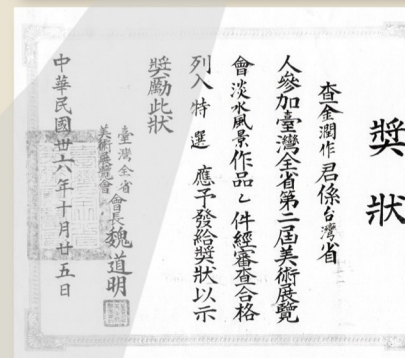 獎狀
查金潤作君係台灣省
人參加臺灣全省第二屆美術展覽
會淡水風景作品乙件經審查合格
列入特選 應予發給獎狀以示
獎勵此狀
臺灣全省
美術展覽會 會長魏道明
中華民國卅六年十月廿五日